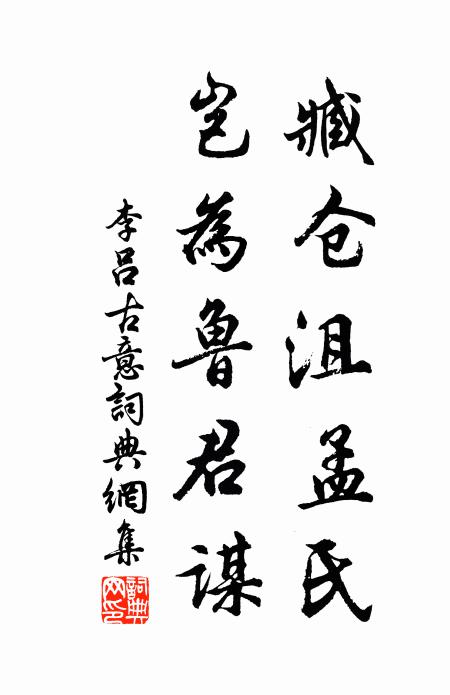 臧仓沮孟氏
岂為魯君谋
李吕古意詞典網集
詞典
网印